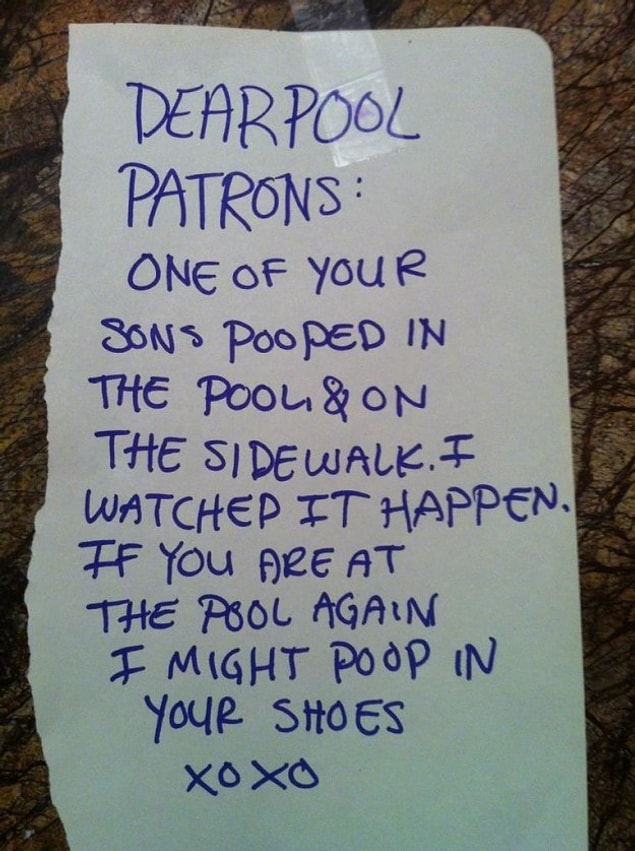 DEAR POOL
PATRONS:
ONE OF YOUR
SONS POOPED IN
THE POOL & ON
THE SIDEWALK. I
WATCHED IT HAPPEN.
IF YOU ARE AT
THE POOL AGAIN
I MIGHT POOP IN
YOUR SHOES
XOXO